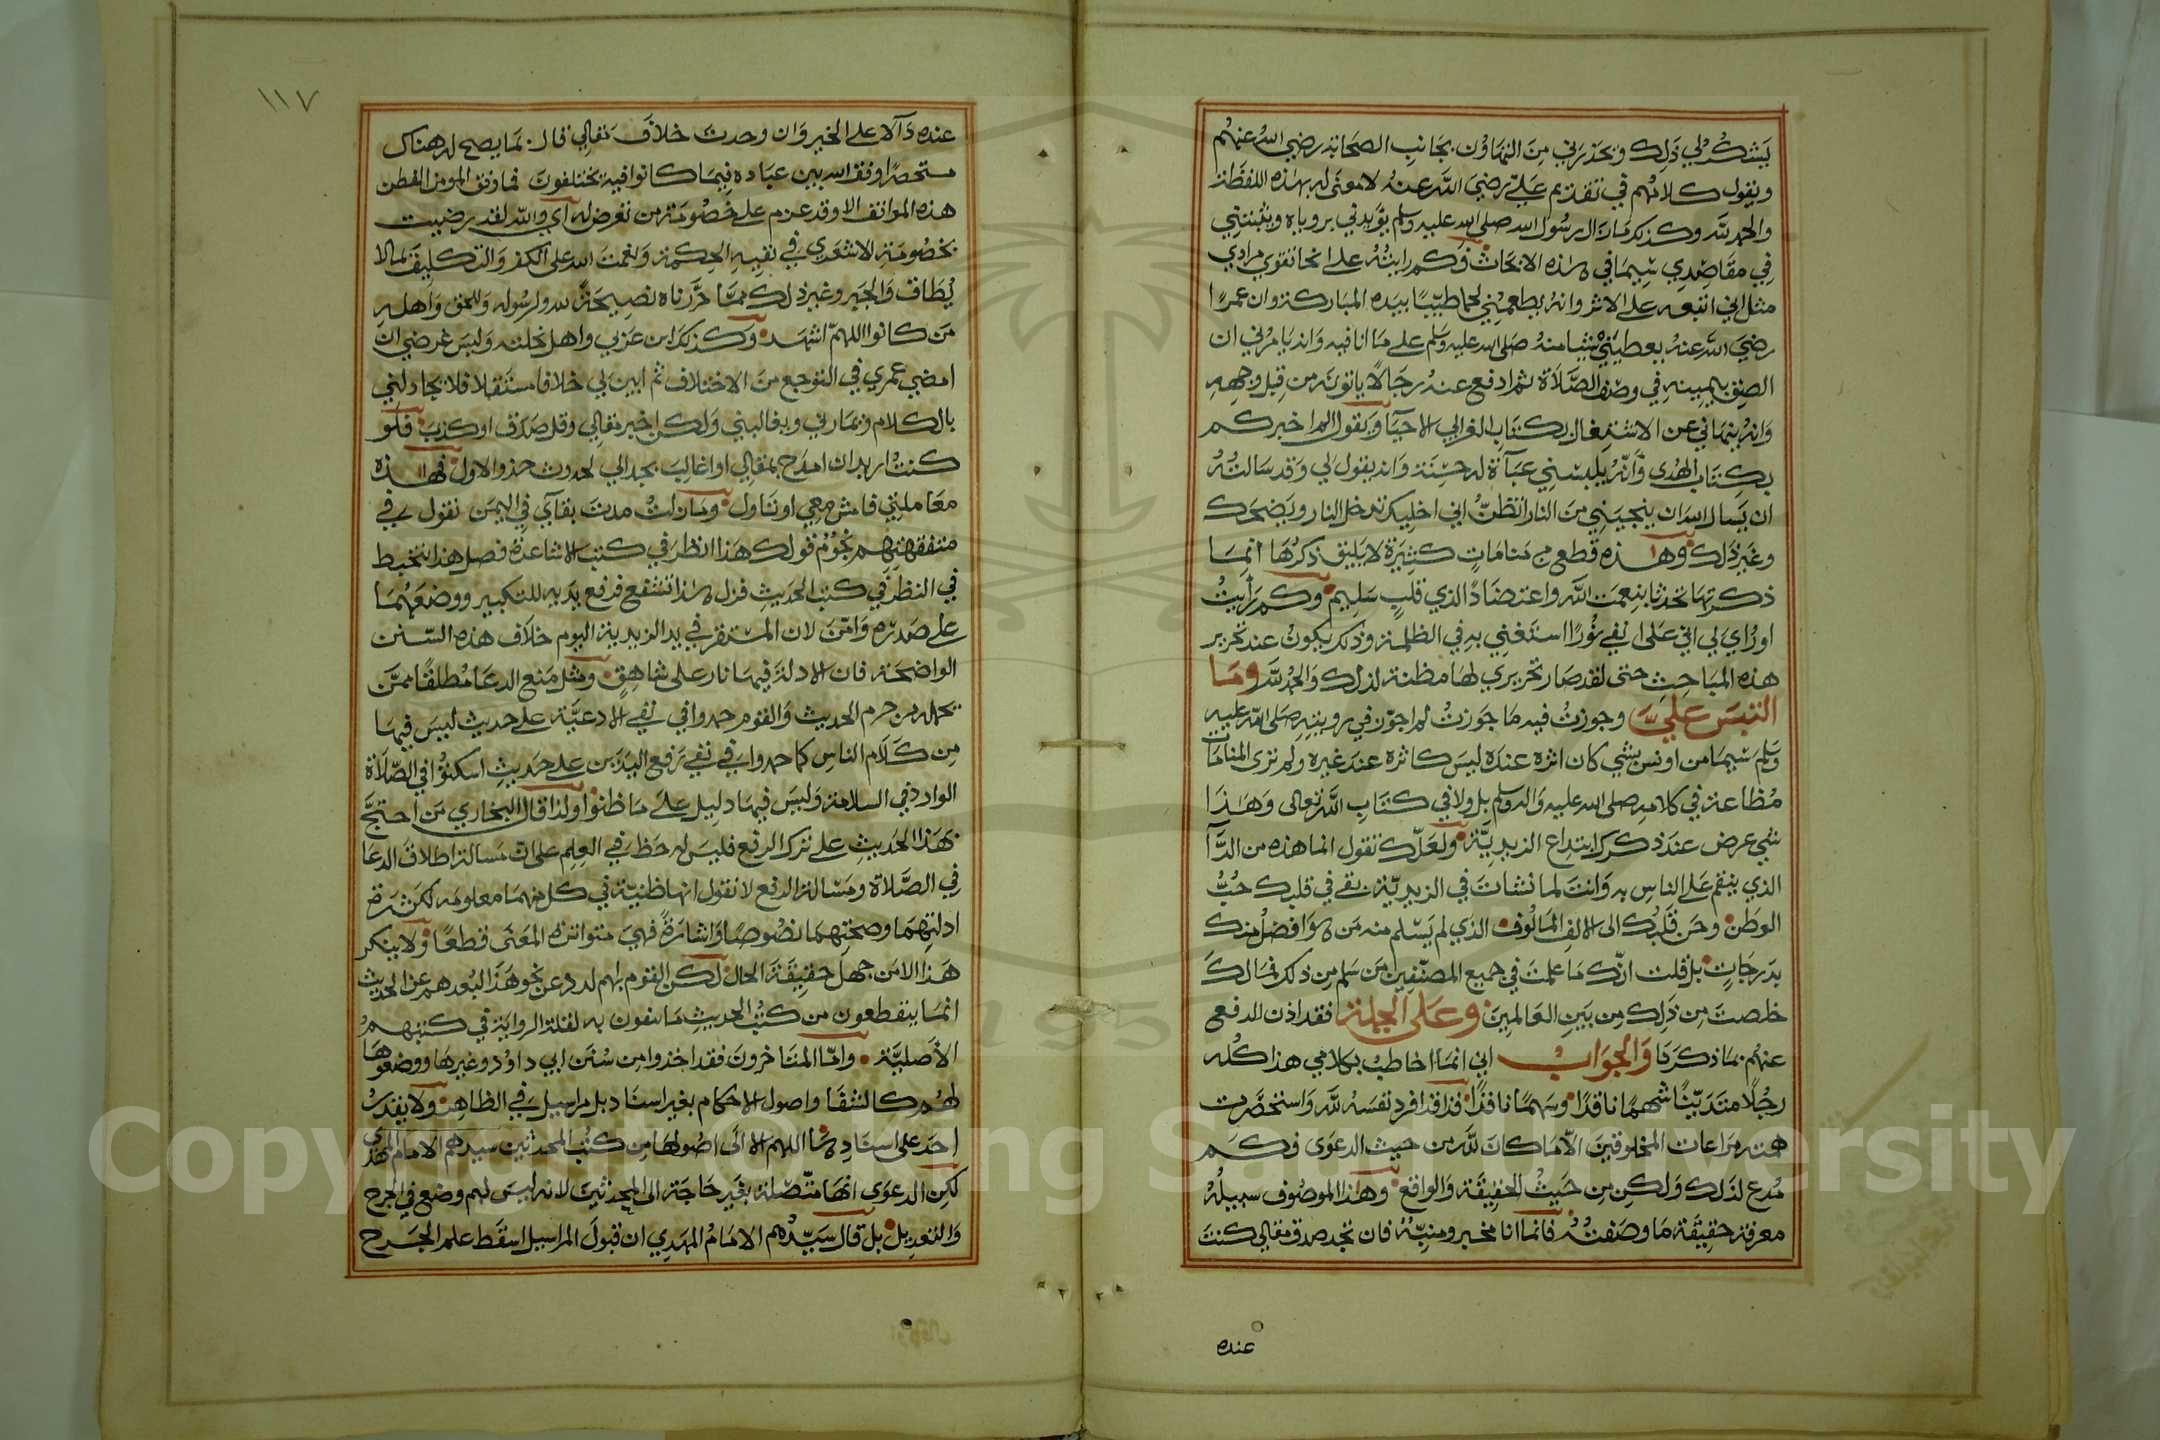 يشكر لي ذلك ويحذرني من التهاون بجانب الصحابة رضي الله عنهم
ويقول كلامهم في تقديم علي رضي الله عنه لا معنى له بهذه اللفظة
والحمد لله وكذلك ما زال رسول الله صلى الله عليه وسلم يؤيدني برؤياه ويثبتني
في مقاصدي سيما في هذه الابحاث فكم رايته على انحا تقوي مرادي
مثل اني اتبعه على الاثر وانه يطعمني لحما طيبا بيده المباركة وان عمر
رضي الله عنه يعطيني شيا منه صلى الله عليه وسلم على ما انا فيه وانه يامرني ان
الصق بيمينه في وصف الصلاة ثم ادفع عنه رجالا ياتونه من قبل وجهه
وانه ينهاني عن الاشتغال بكتاب الغزالي الاحيا ويقول الم اخبركم
بكتاب الهدى وانه يلبسني عباة له حسنة وانه يقول لي وقد سالته
ان يسال الله ان ينجيني من النار اتظن اني اخليك تدخل النار ويضحك
وغير ذلك وهذه قطع من منامات كثيرة لا يليق ذكرها انما
ذكرتها تحدثا بنعمت الله واعتضادا لذي قلب سليم وكم رايت
او راي لي اني على او في نورا استغني به في الظلمة وذلك يكون عند تحرير
هذه المباحث حتى لقد صار تحريري لها مظنة لذلك والحمد لله وما
التبس علي وجوزت فيه ما جوزت لم اجوز في رويته صلى الله عليه
وسلم سيما من اونس بشي كان اثره عنده ليس كاثره عند غيره ولم نرى المنامات
مظاعة في كلامه صلى الله عليه واله وسلم بل ولا في كتاب الله تعالى وهذا
شي عرض عند ذكر ابتداع الزيدية ولعلك تقول انما هذه من الدآ
الذي ينقم على الناس به وانت لما نشات في الزيدية بقي في قلبك حب
الوطن وحن قلبك الى الالف المالوف الذي لم يسلم منه من هو افضل منك
بدرجات بل قلت انك ما علمت في جميع المصنفين من سلم من ذلك فما لك
خلصت من ذلك من بين العالمين وعلى الجملة فقد اذن للدفعي
عنهم بما ذكرنا والجواب اني انما اخاطب بكلامي هذا كله
رجلا متدينا شهما ناقدا وسهما نافذا قد افرد نفسه لله واستحضرت
همته مراعات المخلوقين الا ما كان لله من حيث الدعوى فكم
مدع لذلك ولكن من حيث الحقيقة والواقع وهذا الموصوف سبيله
معرفة حقيقة ما وصفته فانما انا مخبر ومنبه فان تجد صدق مقالي كنت
عنده
١١٧
عنده دآلا على الخير وان وجدت خلاف مقالي قال بما يصح له هناك
مستحضرا وقف الله بين عباده فيما كانوا فيه يختلفون فما وقف المومن الفطن
هذه المواقف الا وقد عزم على خصومة من تعرض له اي والله لقد رضيت
بخصومة الاشعري في نفيه الحكمة ونعمت الله على الكفر والتكليف بما لا
يطاق والجبر وغير ذلك مما حررناه نصيحة لله ولرسوله وللحق واهله
من كانوا اللهم اشهد وكذلك ابن عربي واهل نحلته وليس غرضي ان
امضي عمري في التوجع من الاختلاف ثم ابين لي خلافا مستقلا فلا يجادلني
بالكلام ويماريني ويغالبني ولكن اخبر مقالي وقل صدق او كذب فلو
كنت اريد ان امدح بمقالي او اغالب بجدالي لحذوت حذو الاول فهذه
معاملتي فامش معي او تناول وما زلت مدت بقآي في اليمن نقول في
متفقهتهم نجوم قولك هذا انظر في كتب الاشاعرة فصل هذا تخبط
في النظر في كتب الحديث فزل هذا تشفع فرفع يديه للتكبير ووضعهما
على صدره وامن لان المستقر في يد الزيدية اليوم خلاف هذه السنن
الواضحة فان الادلة فيها نار على شاهق ومثل منع الدعا مطلقا ممن
يحمله من حرم الحديث والقوم جمدوا في نفي الادعية على حديث ليس فيها
من كلام الناس كما جمدوا في نفي رفع اليدين على حديث اسكنوا في الصلاة
الوارد في السلام وليس فيهما دليل على ما ظنوا ولذا قال البخاري من احتج
بهذا الحديث على ترك الرفع فليس له حظ في العلم على ان مسالة اطلاق الدعا
في الصلاة ومسالة الرفع لا نقول انها ظنية في كل منهما معلومه لكثرة
ادلتهما وصحتهما نصوصا واشارة فهي متواترة المعنى قطعا ولا ينكر
هذا الا من جهل حقيقة الحال لكن القوم بهم لدد عن نحو هذا لبعدهم عن الحديث
انما يتقطعون من كتب الحديث ما ينفون به لقلة الرواية في كتبهم
الاصلية واما المتاخرون فقد اخذوا من سنن ابي داود وغيرها ووضعوها
لهم كالشفا واصول الاحكام بغير اسناد بل مراسيل في الظاهر ولا يقدر
احد على اسناد هذا اللهم الا الى اصولها من كتب المحدثين سيدهم الامام المهدي
لكن الدعوى انها متصلة بغير حاجة الى المحدثين لانه ليس لهم وضع في الجرح
والتعديل بل قال سيدهم الامام المهدي ان قبول المراسيل اسقط علم الجرح
Copyright © King Saud University